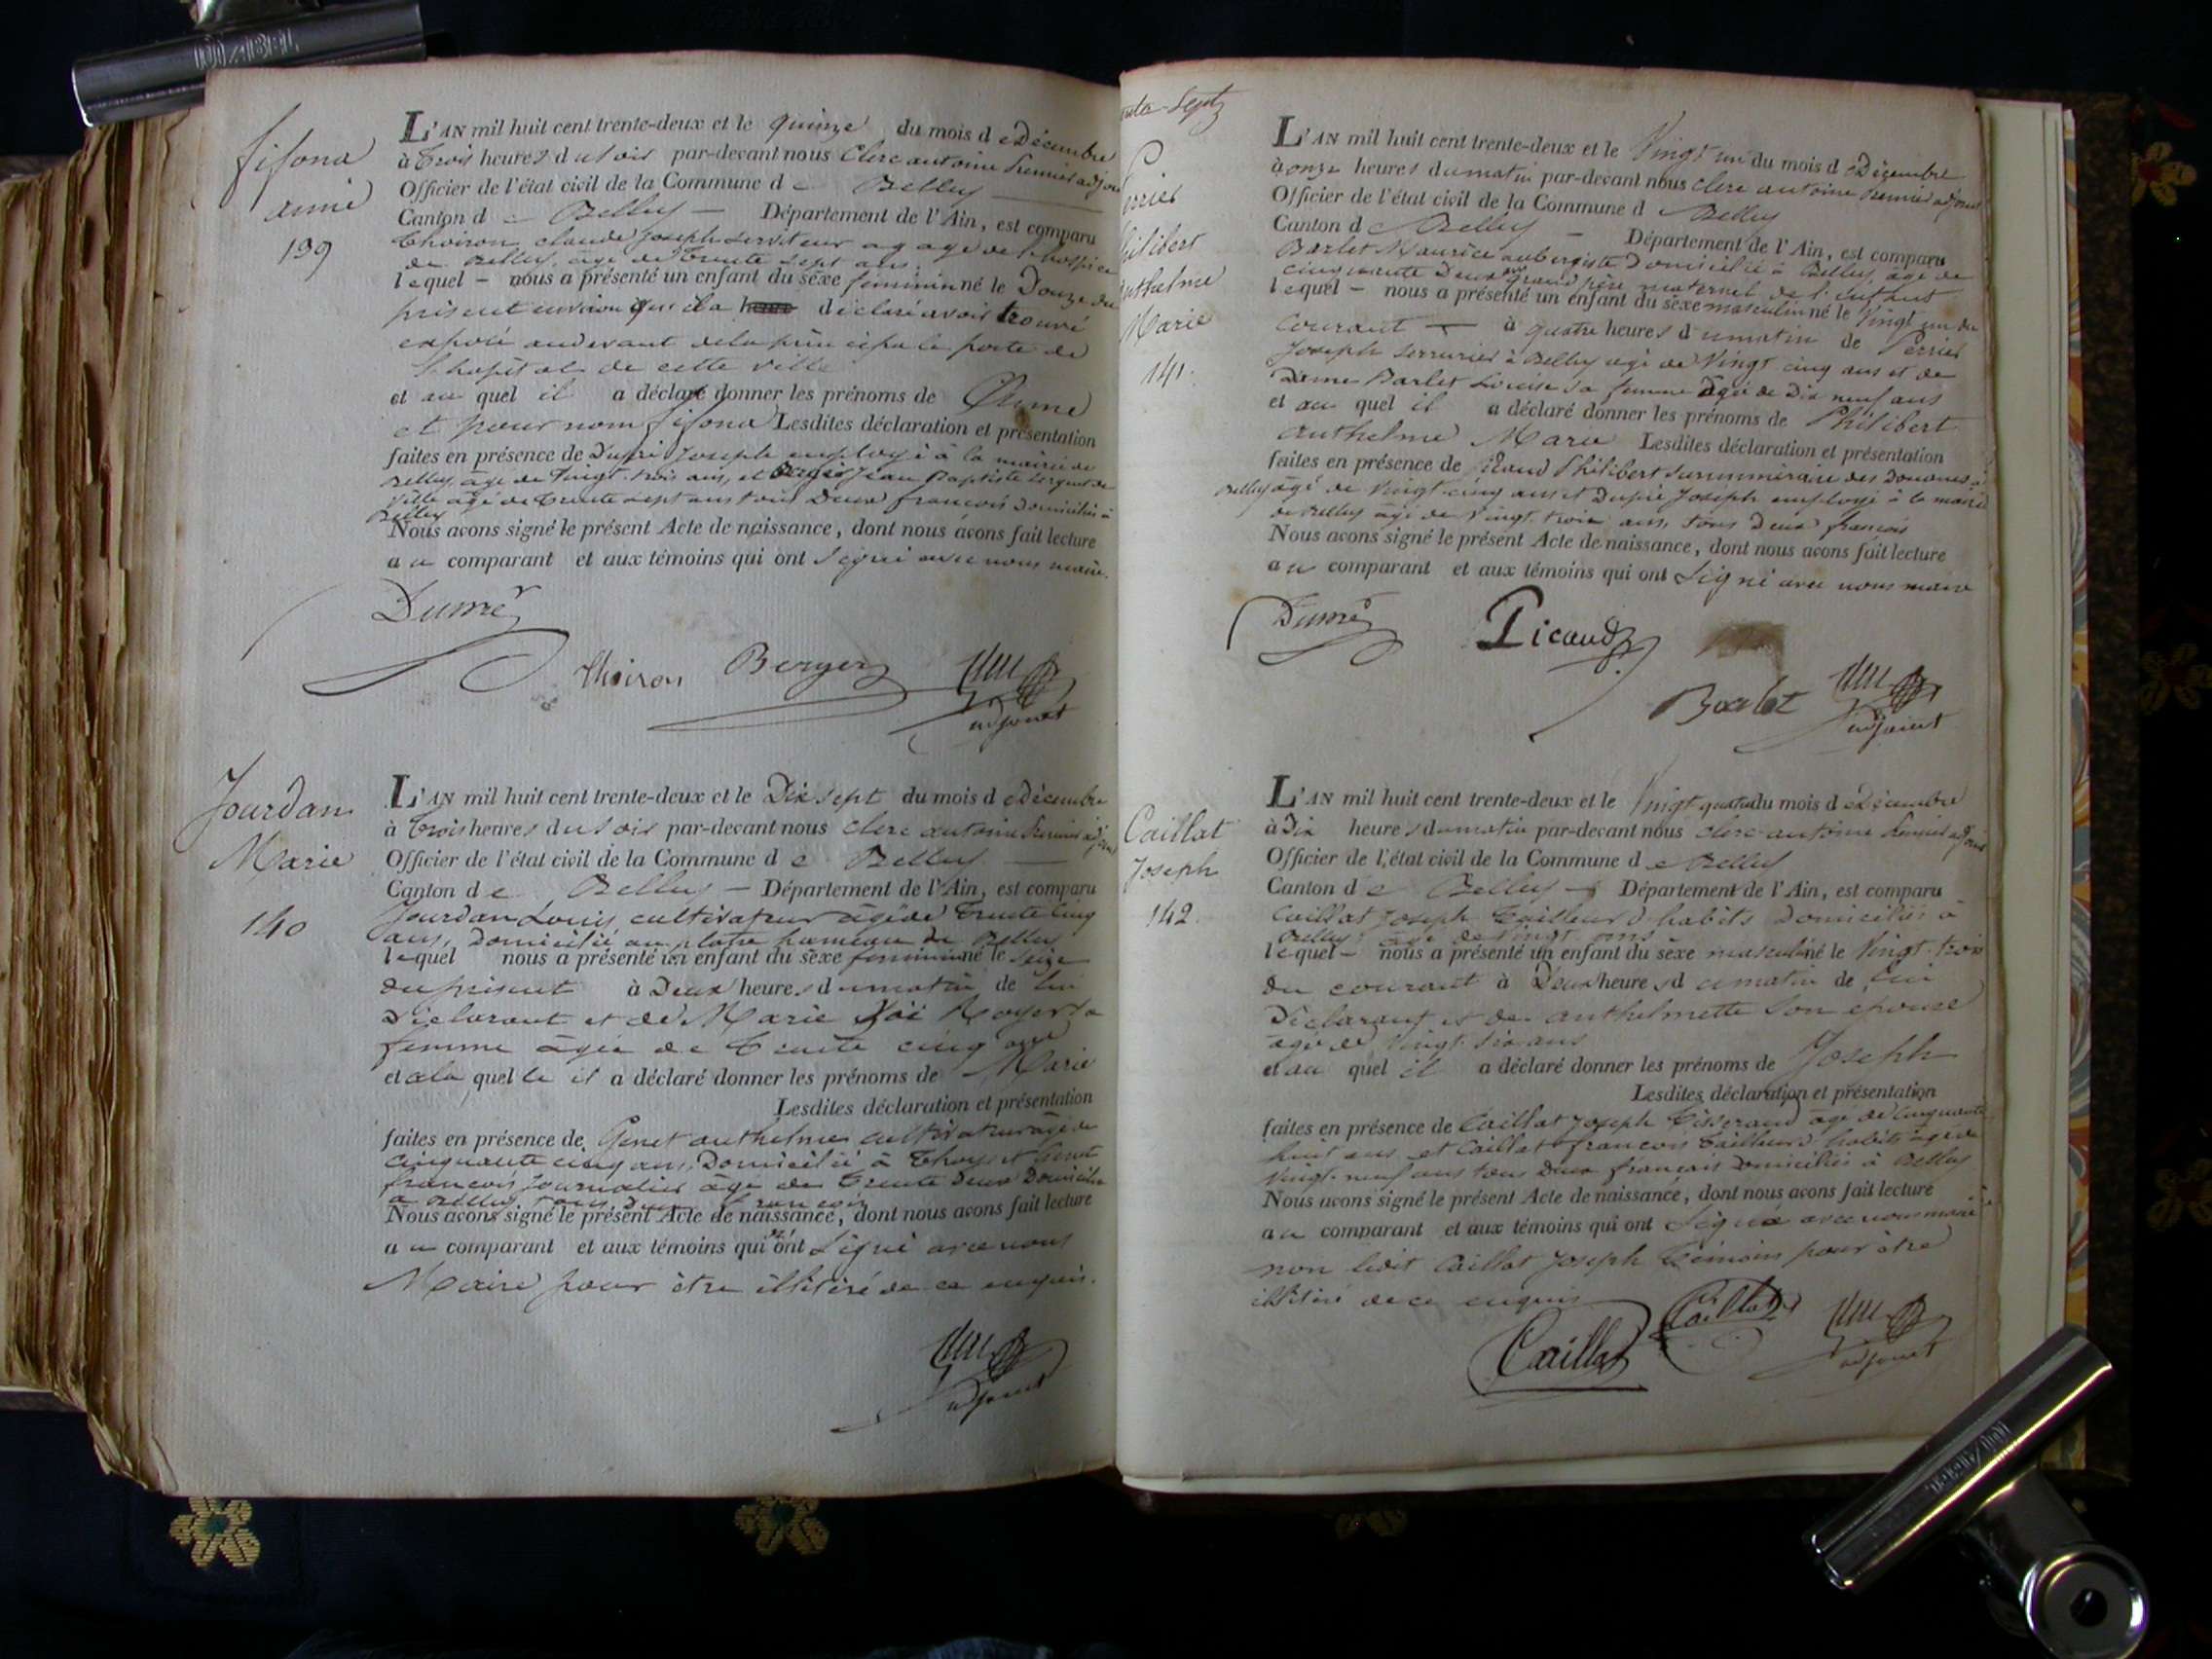 fifona
anne
139
L'AN mil huit cent trente-deux et le quinze du mois de Décembre
à trois heures du soir par-devant nous Clerc antoine premier adjoint
Officier de l'état civil de la Commune de Belley
Canton de Belley — Département de l'Ain, est comparu
Thoiron claude joseph serviteur a gage de l'hospice
de Belley, age de trente sept ans
lequel — nous a présenté un enfant du séxe feminin né le Douze du
présent environ que il a déclaré avoir trouvé
exposé audevant de la principale porte de
l'hopital de cette ville
et au quel il a déclaré donner les prénoms de Anne
et pour nom fifona Lesdites déclaration et présentation
faites en présence de Dupré Joseph employé à la mairie de
Belley, age de Vingt-trois ans, et Berger Jean Baptiste sergent de
Ville agé de trente sept ans tous Deux francois Domiciliés à
Belley
Nous avons signé le présent Acte de naissance, dont nous avons fait lecture
au comparant et aux témoins qui ont signé avec nous maire.
Dupré
thoiron Berger
adjoint
Jourdan
Marie
140
L'AN mil huit cent trente-deux et le Dix sept du mois de Décembre
à trois heures du soir par-devant nous Clerc antoine premier adjoint
Officier de l'état civil de la Commune de Belley
Canton de Belley — Département de l'Ain, est comparu
Jourdan Louis cultivateur agé de trente cinq
ans, Domicilié au hameau de Belley
lequel nous a présenté un enfant du séxe feminin né le seize
du présent à Deux heures du matin de lui
Déclarant et de Marie Royer sa
femme agée de trente cinq ans
et a la quelle il a déclaré donner les prénoms de Marie
Lesdites déclaration et présentation
faites en présence de Genet anthelme cultivateur agé de
cinquante cinq ans, Domicilié à Thoys et Genet
francois journalier agé de trente Deux Domicilié
à Belley tous Deux francois
Nous avons signé le présent Acte de naissance, dont nous avons fait lecture
au comparant et aux témoins qui n'ont signé avec nous
Maire pour être illitéré de ce enquis.
adjoint
Septz
Perrier
Philibert
anthelme
Marie
141.
L'AN mil huit cent trente-deux et le Vingt un du mois de Décembre
à onze heures du matin par-devant nous clerc antoine premier adjoint
Officier de l'état civil de la Commune de Belley
Canton de Belley — Département de l'Ain, est comparu
Barlet Maurice aubergiste Domicilié à Belley, âgé de
cinquante Deux ans grand père maternel de l'enfant
lequel — nous a présenté un enfant du séxe masculin né le Vingt un du
courant — à quatre heures du matin de Perrier
Joseph serrurier à Belley agé de Vingt cinq ans et de
Dame Barlet Louise sa femme agée de Dix neuf ans
et au quel il a déclaré donner les prénoms de Philibert
anthelme Marie Lesdites déclaration et présentation
faites en présence de picaud Philibert surnuméraire des Douanes à
Belley agé de Vingt-cinq ans et Dupré Joseph employé à la mairie
de Belley agé de Vingt trois ans, tous Deux francois
Nous avons signé le présent Acte de naissance, dont nous avons fait lecture
au comparant et aux témoins qui ont signé avec nous maire
Dupré Picaud
Barlet
adjoint
Caillat
Joseph
142.
L'AN mil huit cent trente-deux et le Vingt quatre du mois de Décembre
à Dix heures du matin par-devant nous clerc antoine premier adjoint
Officier de l'état civil de la Commune de Belley
Canton de Belley — Département de l'Ain, est comparu
Caillat Joseph tailleur d'habits Domicilié à
Belley, âgé de Vingt ans
lequel — nous a présenté un enfant du séxe masculin né le Vingt-trois
du courant à Deux heures du matin de lui
Déclarant et de anthelmette son epouse
agée de Vingt six ans
et au quel il a déclaré donner les prénoms de Joseph
Lesdites déclaration et présentation
faites en présence de Caillat Joseph tisserand agé de Cinquante
huit ans et Caillat francois tailleur d'habits agé de
Vingt-neuf ans tous Deux francais Domiciliés à Belley
Nous avons signé le présent Acte de naissance, dont nous avons fait lecture
au comparant et aux témoins qui ont signé avec nous maire
non ledit Caillat Joseph témoin pour être
illitéré de ce enquis
Caillat Caillat
adjoint